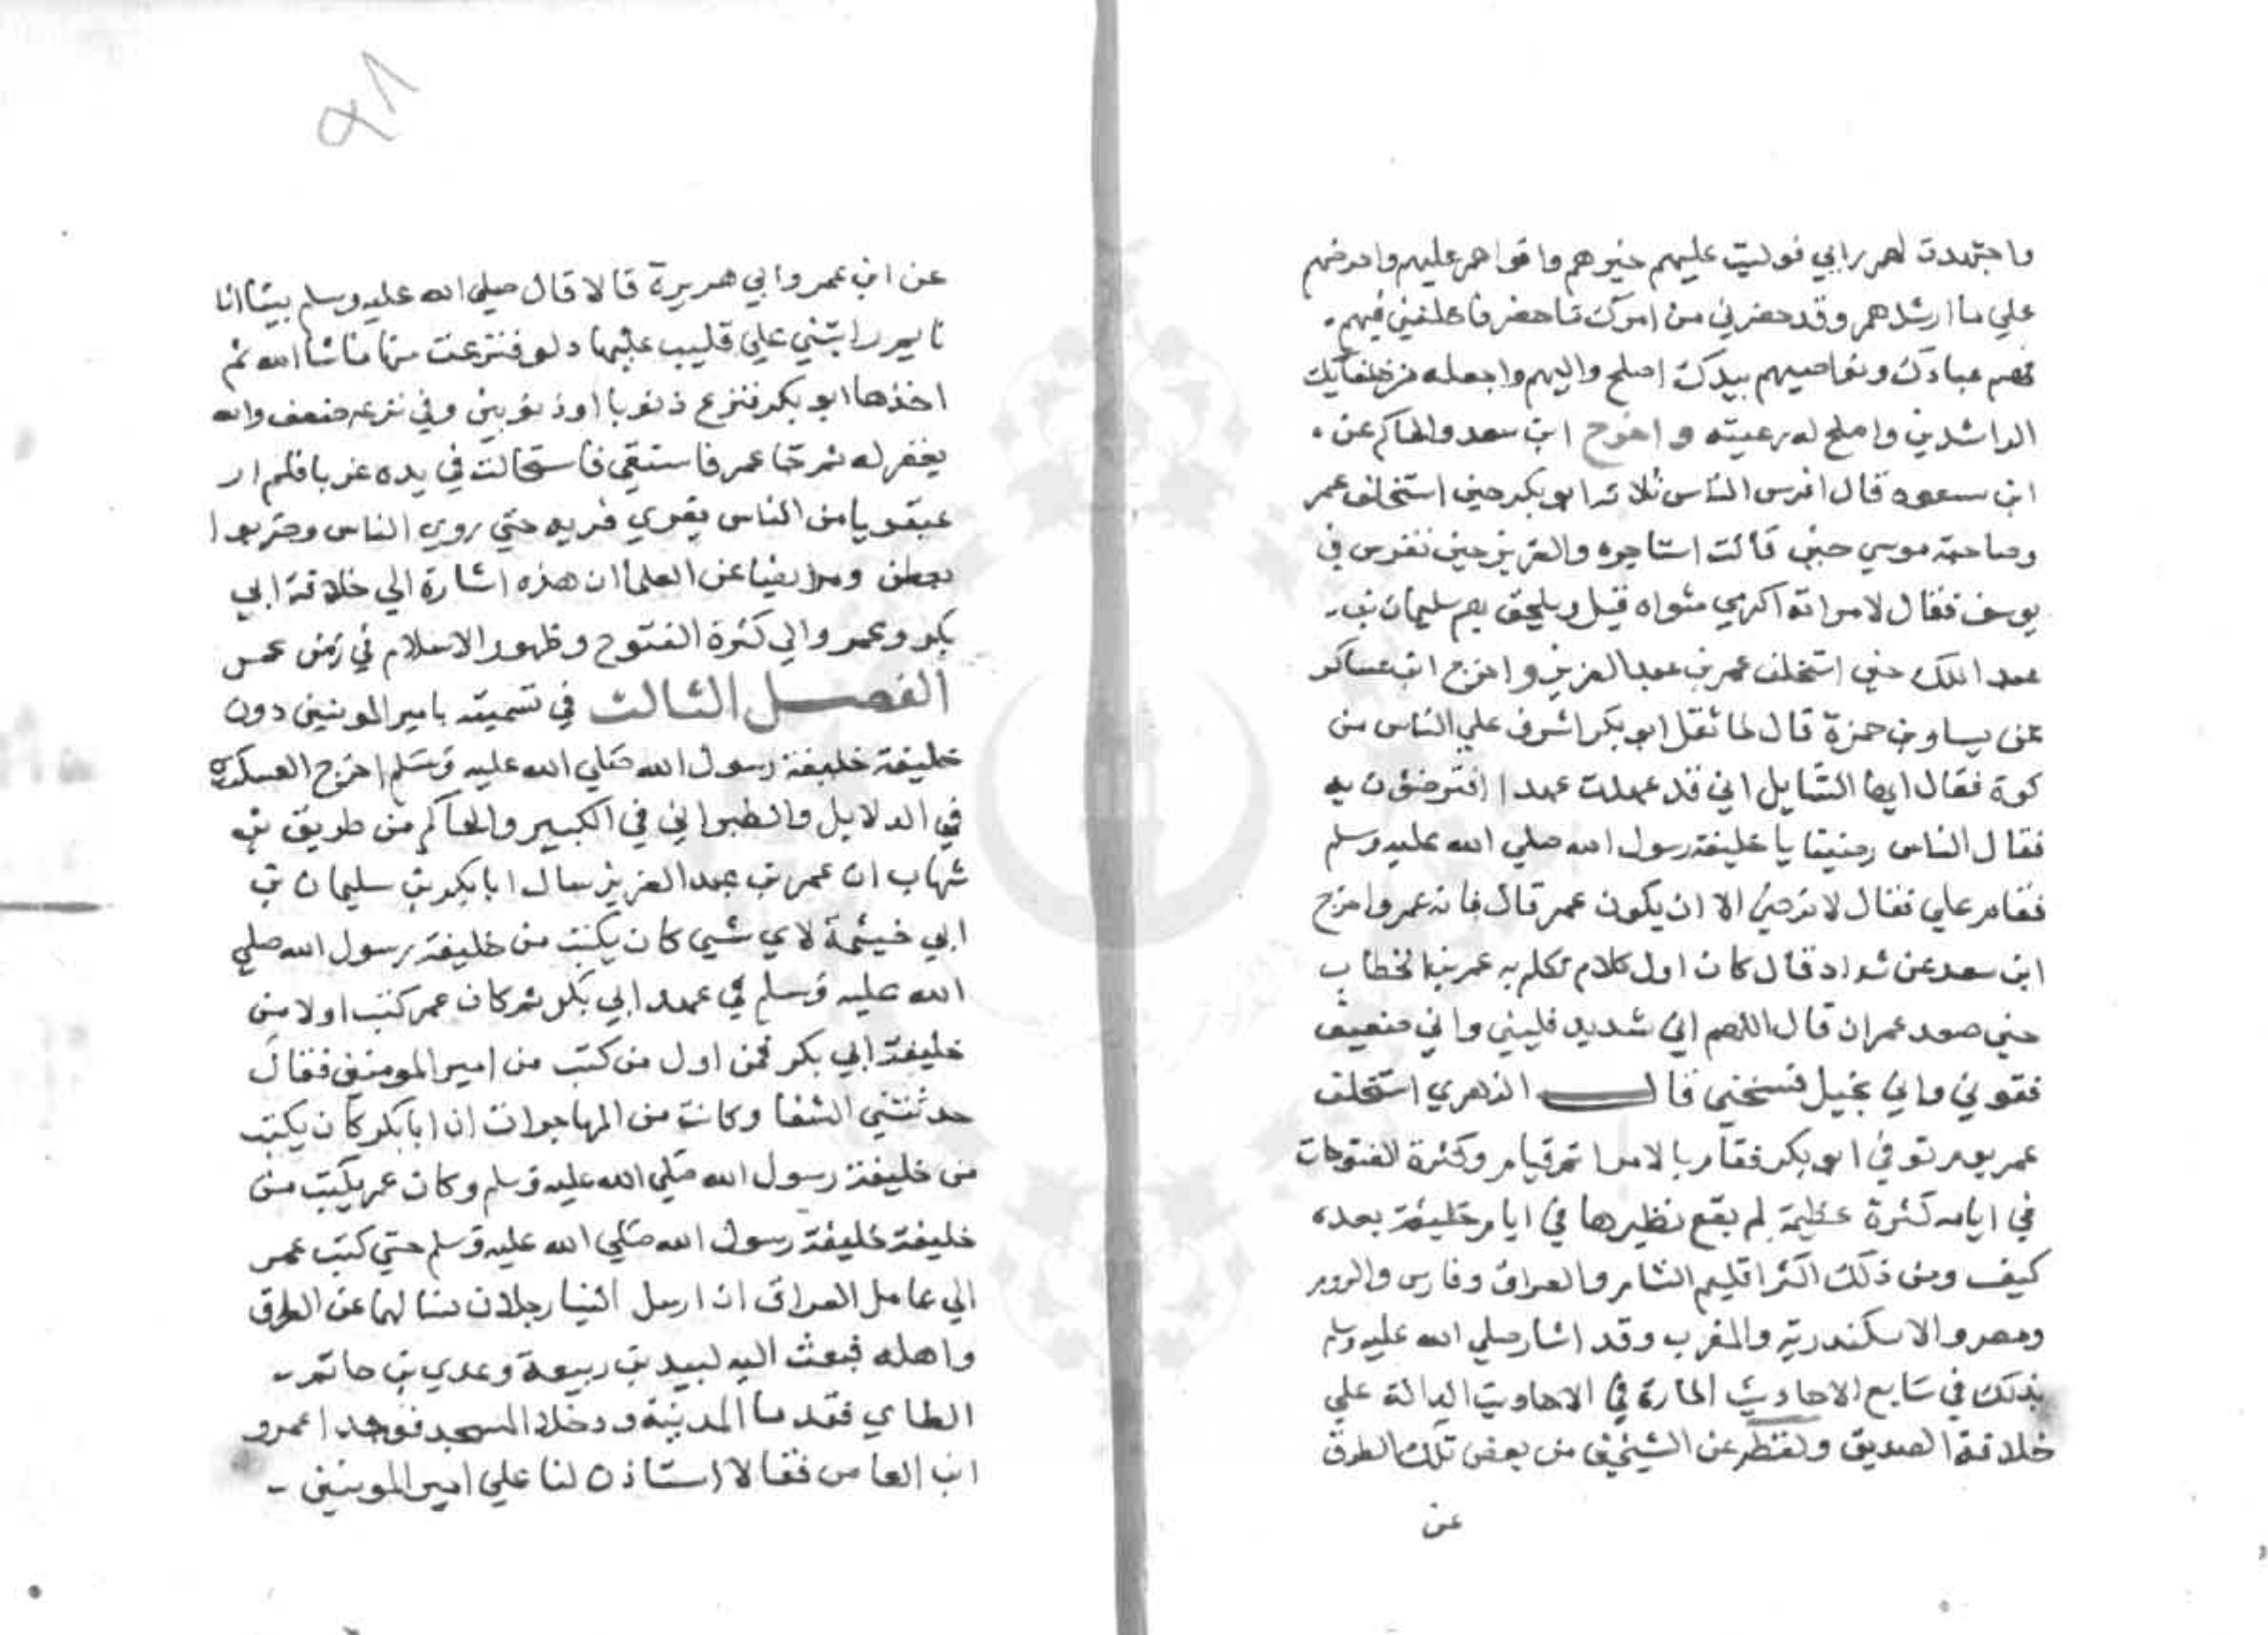 واجتهدت لهم رايي فوليت عليهم خيرهم واقواهم عليهم واحرصهم
علي ما ارشدهم وقد حضرني من امرك ما حضر فاخلفني فيهم
فهم عبادك ونواصيهم بيدك اصلح واليهم واجعله من خلفايك
الراشدين واصلح له رعيته واخرج ابن سعد والحاكم عن
ابن مسعود قال افرس الناس ثلاثة ابو بكر حين استخلف عمر
وصاحبة موسي حين قالت استاجره والعزيز حين تفرس في
يوسف فقال لامراته اكرمي مثواه قيل ويلحق بهم سليمان بن
عبد الملك حين استخلف عمر بن عبد العزيز واخرج ابن عساكر
عن يسار بن حمزة قال لما ثقل ابو بكر اشرف علي الناس من
كوة فقال ايها الناس اني قد عهدت عهدا افترضون به
فقال الناس رضينا يا خليفة رسول الله صلي الله عليه وسلم
فقام علي فقال لا نرضي الا ان يكون عمر قال فانه عمر واخرج
ابن سعد عن شداد قال كان اول كلام تكلم به عمر بن الخطاب
حين صعد عمر ان قال اللهم اني شديد فليني واني ضعيف
فقوني واني بخيل فسخني قال الزهري استخلف
عمر يوم توفي ابو بكر فقام بالامر اتم قيام وكثرة الفتوحات
في ايامه كثرة عظيمة لم يقع نظيرها في ايام خليفة بعده
كيف ومن ذلك اكثر اقليم الشام والعراق وفارس والروم
ومصر والاسكندرية والمغرب وقد اشار صلي الله عليه وسلم
بذلك في سابع الاحاديث المارة في الاحاديث الدالة علي
خلافة الصديق ولفظه عن الشيخين من بعض تلك الطرق
عن
٩٨
عن ابن عمر وابي هريرة قالا قال صلي الله عليه وسلم بينا انا
نايم رايتني علي قليب عليها دلو فنزعت منها ما شا الله ثم
اخذها ابو بكر فنزع ذنوبا او ذنوبين وفي نزعه ضعف والله
يغفر له ثم جا عمر فاستقي فاستحالت في يده غربا فلم ار
عبقريا من الناس يفري فريه حتي روي الناس وضربوا
بعطن ومر ايضا عن العلما ان هذه اشارة الي خلافة ابي
بكر وعمر والي كثرة الفتوح وظهور الاسلام في زمن عمر
الفصل الثالث في تسميته بامير المومنين دون
خليفة خليفة رسول الله صلي الله عليه وسلم اخرج العسكري
في الدلايل والطبراني في الكبير والحاكم من طريق بن
شهاب ان عمر بن عبد العزيز سال ابا بكر بن سليمان بن
ابي خيثمة لاي شي كان يكتب من خليفة رسول الله صلي
الله عليه وسلم في عهد ابي بكر ثم كان عمر كتب اولا من
خليفة ابي بكر فمن اول من كتب من امير المومنين فقال
حدثتني الشفا وكانت من المهاجرات ان ابا بكر كان يكتب
من خليفة رسول الله صلي الله عليه وسلم وكان عمر يكتب من
خليفة خليفة رسول الله صلي الله عليه وسلم حتي كتب عمر
الي عامل العراق ان ارسل الينا رجلان نسالهما عن العراق
واهله فبعث اليه لبيد بن ربيعة وعدي بن حاتم
الطاي فقدما المدينة ودخلا المسجد فوجدا عمرو
ابن العاص فقالا استاذن لنا علي امير المومنين